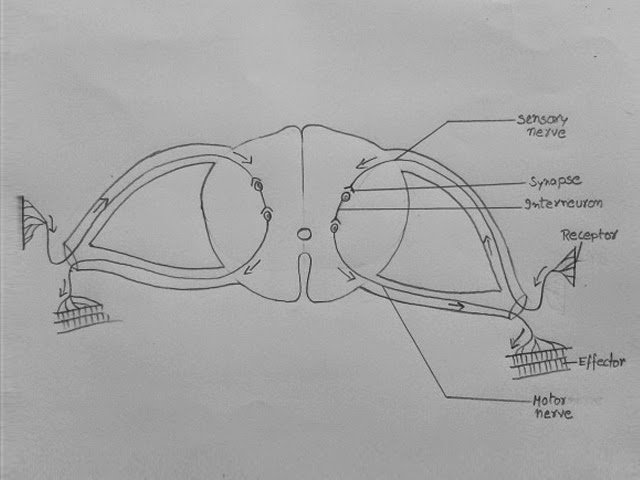 Sensory
nerve
Synapse
Interneuron
Receptor
Effector
Motor
nerve